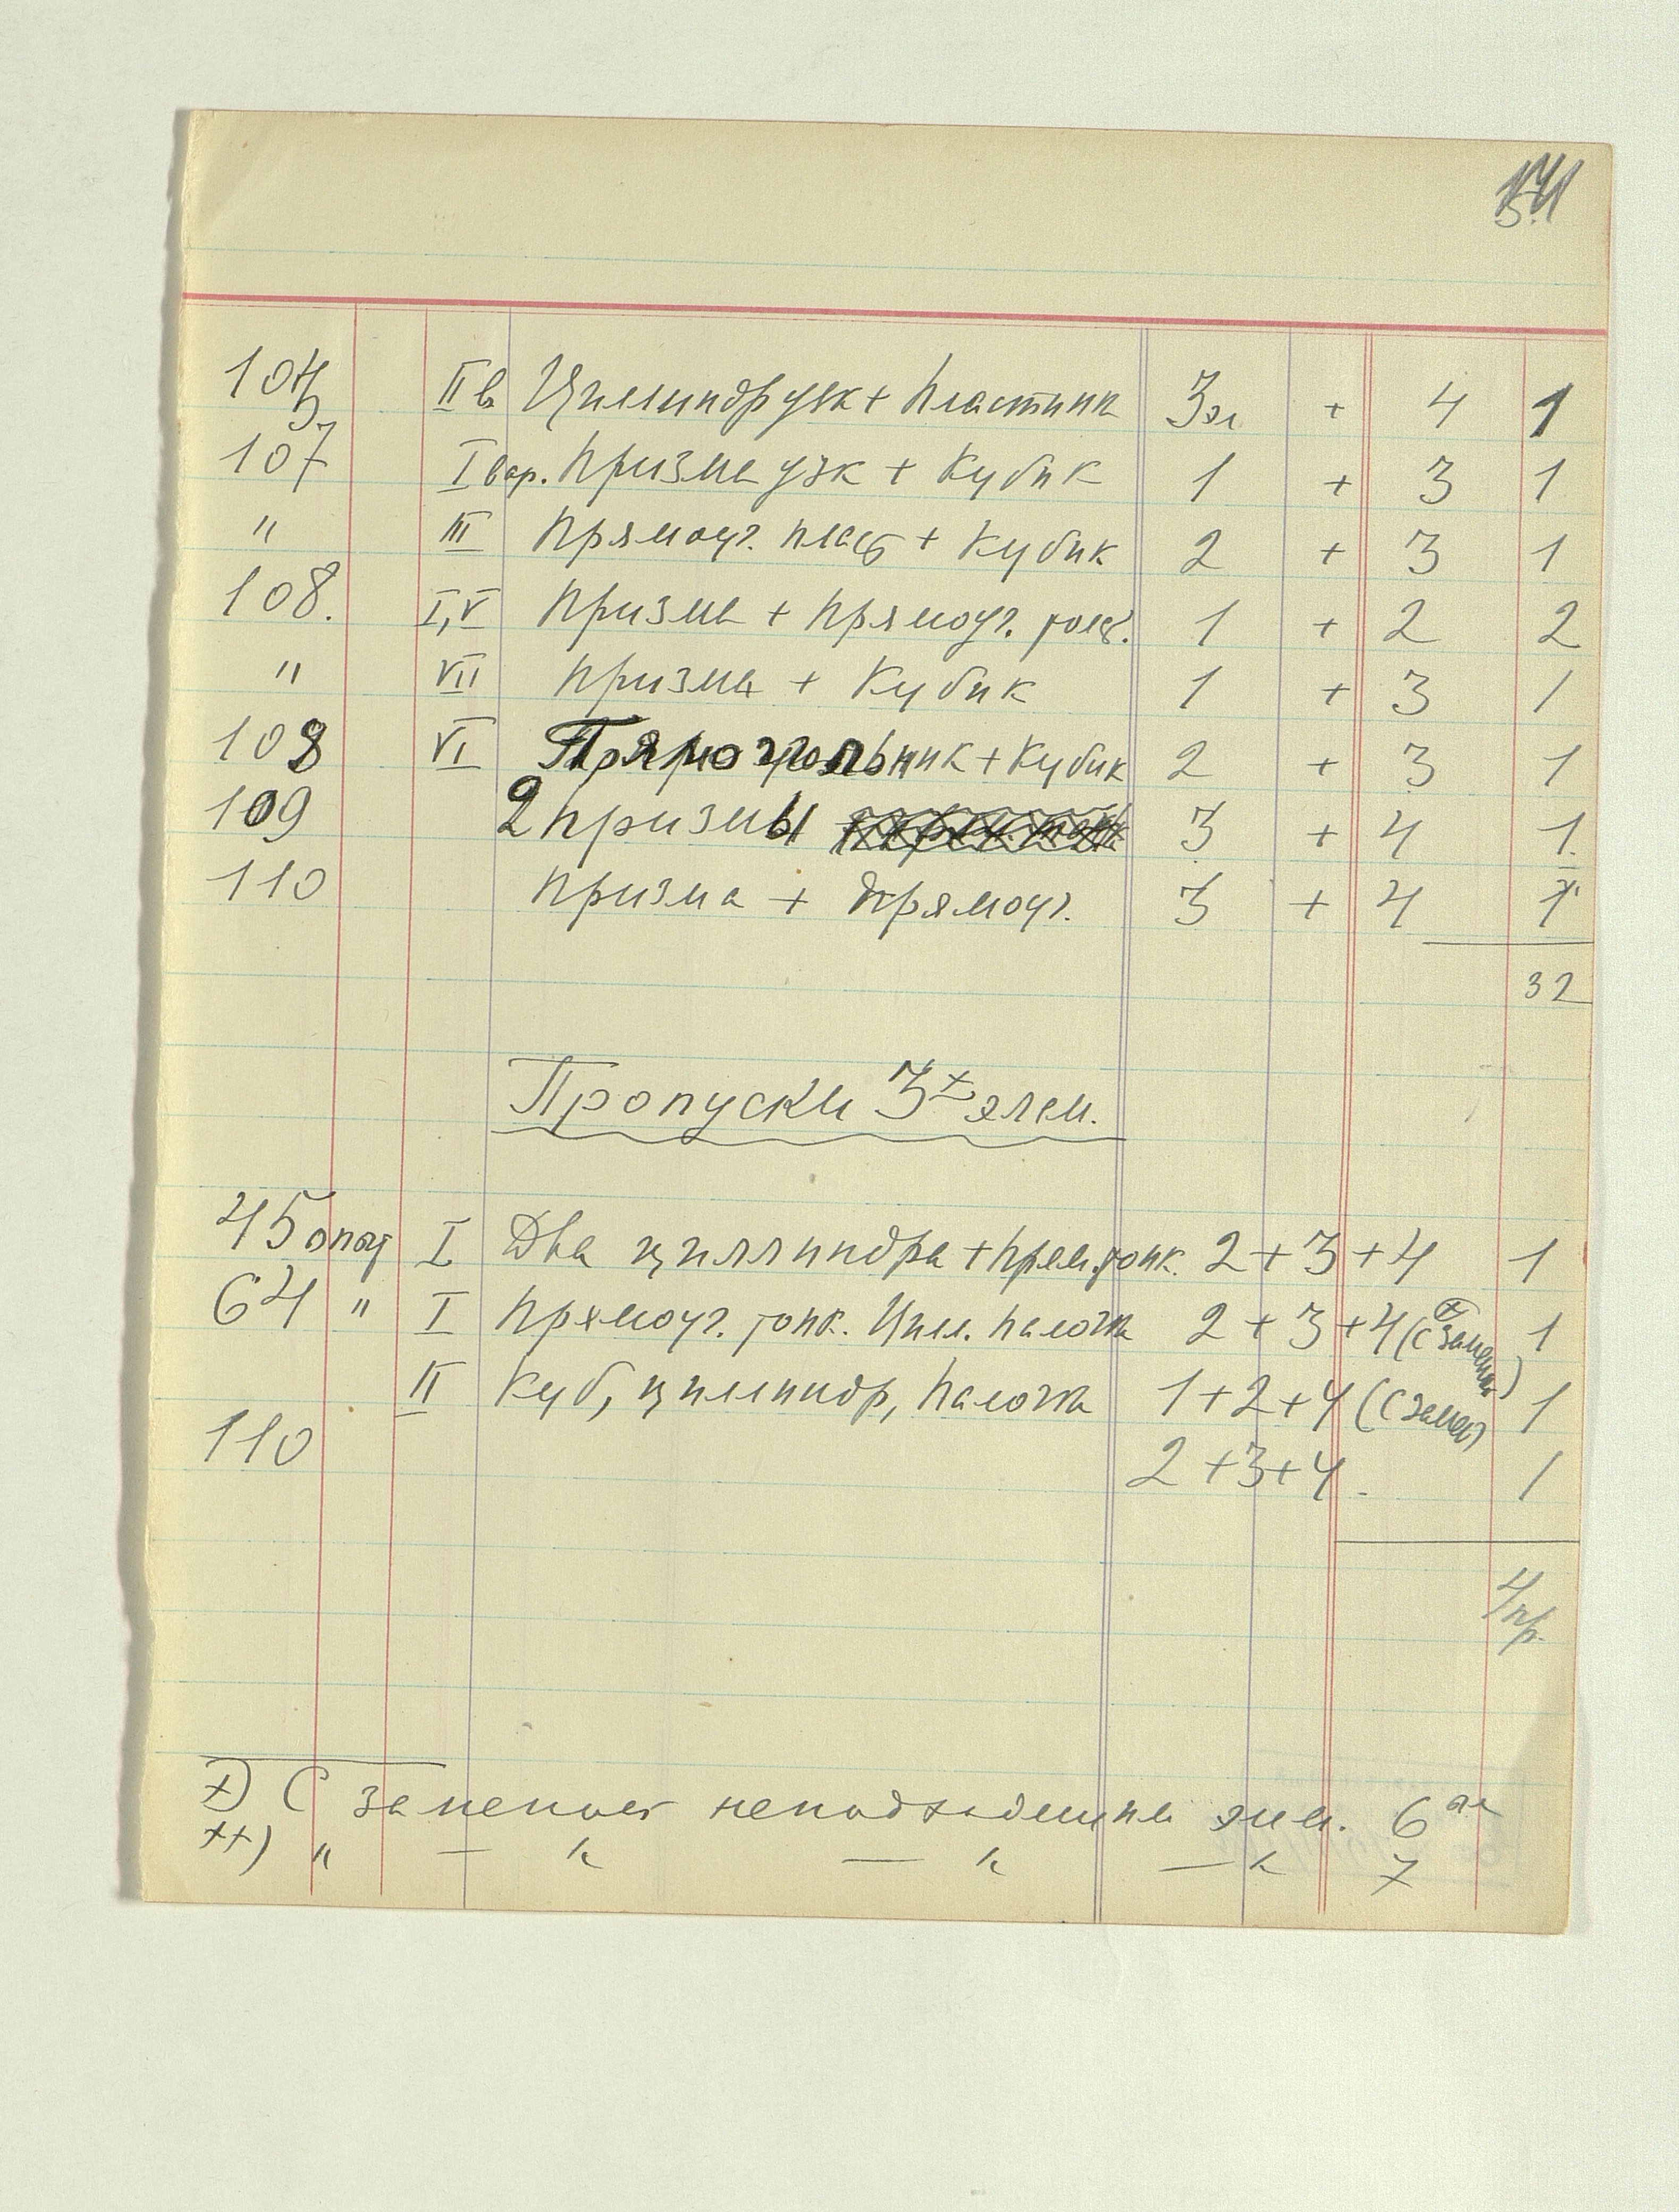 105 IIв Цилиндр узк + Пластинк 3эл + 4 1
107 I вар. Призма узк + Кубик 1 + 3 1
" III Прямоуг. пласт + Кубик 2 + 3 1
108. I, V Призма + прямоуг. 1 + 2 2
" VII призма + Кубик 1 + 3 1
108 VI Прямоугольник + Кубик 2 + 3 1
109 2 призмы 3 + 4 1
110 призма + прямоуг. 3 + 4 1
32
Пропуски 3х элем.
45 опыт I Два циллиндра + прям. тонк. 2 + 3 + 4 1
64 " I Прямоуг. тонк. Цил. палочка 2 + 3 + 4 (с +) замено) 1
II Куб, цилиндр, палочка 1 + 2 + 4 (с замен) 1
110 2 + 3 + 4. 1
4 пр.
+) С заменой неподходящим элем. 6
++) " — " — " — " 7